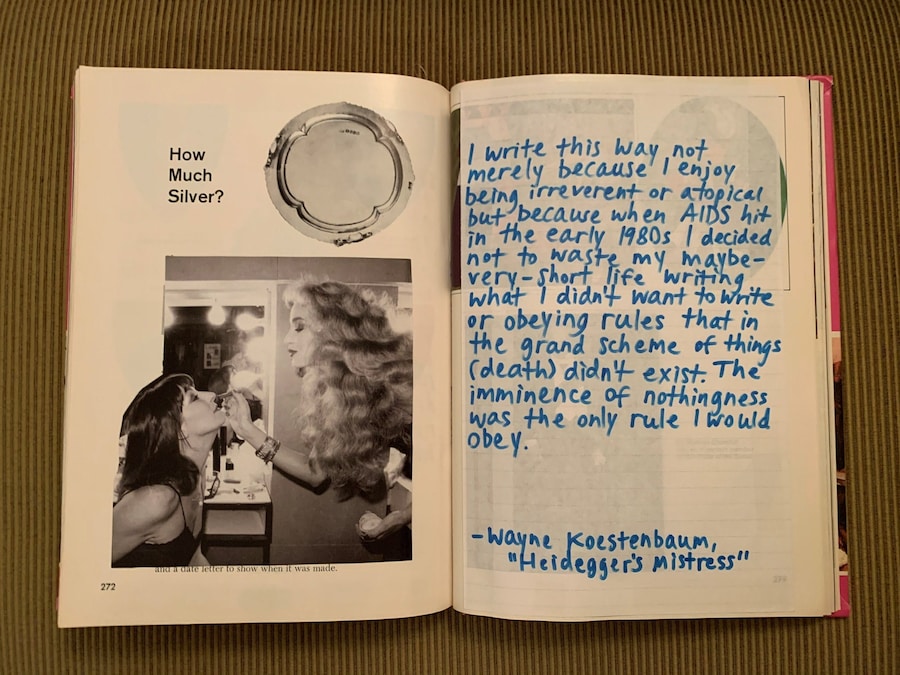 How
Much
Silver?
and a date letter to show when it was made.
272
I write this way not
merely because I enjoy
being irreverent or atopical
but because when AIDS hit
in the early 1980s I decided
not to waste my maybe-
very-short life writing
what I didn't want to write
or obeying rules that in
the grand scheme of things
(death) didn't exist. The
imminence of nothingness
was the only rule I would
obey.
-Wayne Koestenbaum,
"Heidegger's Mistress"